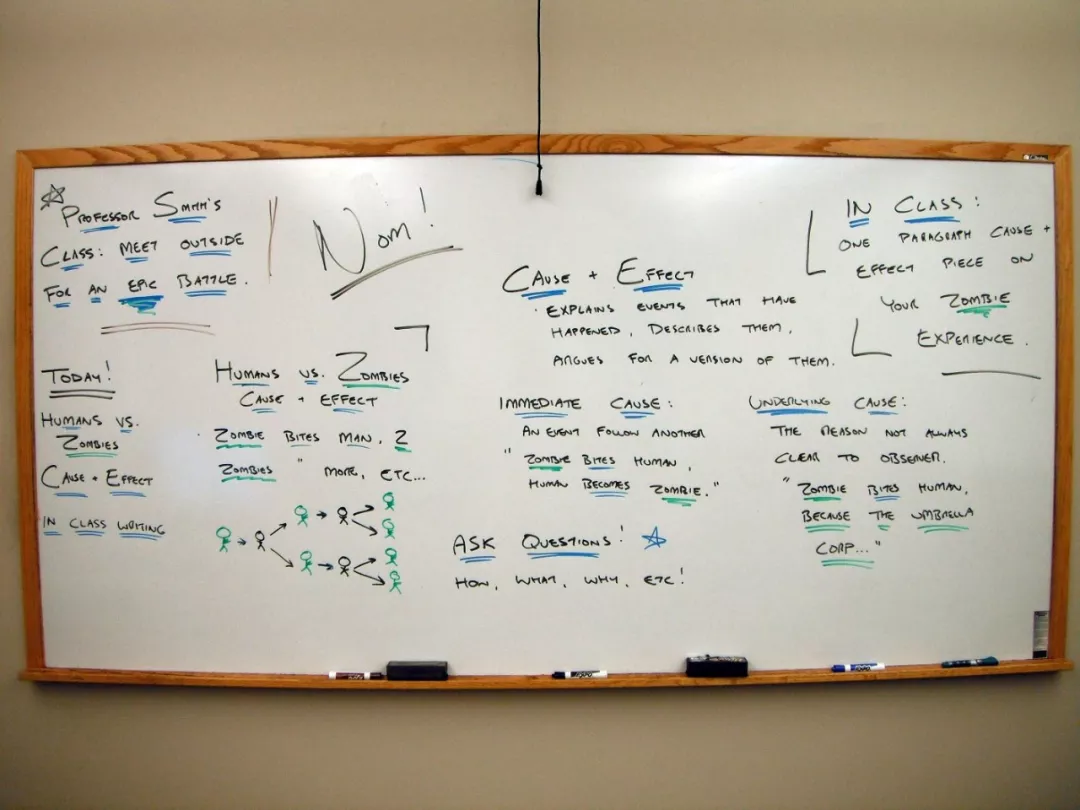 PROFESSOR SMITH'S
CLASS: MEET OUTSIDE
FOR AN EPIC BATTLE.
NOM!
TODAY!
HUMANS VS.
ZOMBIES
CAUSE + EFFECT
IN CLASS WRITING
HUMANS VS. ZOMBIES
CAUSE + EFFECT
ZOMBIE BITES MAN, 2
ZOMBIES " MORE, ETC...
CAUSE + EFFECT
· EXPLAINS EVENTS THAT HAVE
HAPPENED, DESCRIBES THEM,
ARGUES FOR A VERSION OF THEM.
IMMEDIATE CAUSE:
AN EVENT FOLLOW ANOTHER
"ZOMBIE BITES HUMAN,
HUMAN BECOMES ZOMBIE."
ASK QUESTIONS!
HOW, WHAT, WHY, ETC!
IN CLASS:
ONE PARAGRAPH CAUSE +
EFFECT PIECE ON
YOUR ZOMBIE
EXPERIENCE.
UNDERLYING CAUSE:
THE REASON NOT ALWAYS
CLEAR TO OBSERVER.
"ZOMBIE BITES HUMAN,
BECAUSE THE UMBRELLA
CORP..."
EXPO